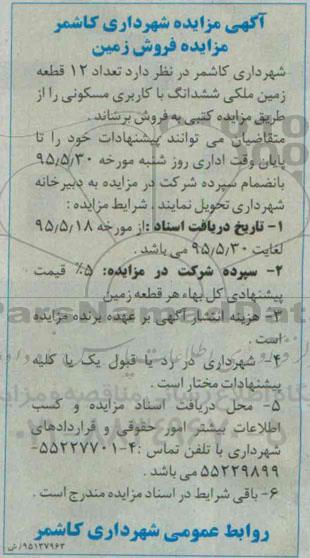 آگهی مزایده شهرداری کاشمر
مزایده فروش زمین
شهرداری کاشمر در نظر دارد تعداد ۱۲ قطعه
زمین ملکی ششدانگ با کاربری مسکونی را از
طریق مزایده کتبی به فروش برساند .
متقاضیان می توانند پیشنهادات خود را تا
پایان وقت اداری روز شنبه مورخه ۹۵/۵/۳۰
بانضمام سپرده شرکت در مزایده به دبیرخانه
شهرداری تحویل نمایند . شرایط مزایده :
۱- تاریخ دریافت اسناد :از مورخه ۹۵/۵/۱۸
لغایت ۹۵/۵/۳۰ می باشد .
۲- سپرده شرکت در مزایده: ۵٪ قیمت
پیشنهادی کل بهاء هر قطعه زمین
۳- هزینه انتشار آگهی بر عهده برنده مزایده
است .
۴- شهرداری در رد یا قبول یک یا کلیه
پیشنهادات مختار است .
۵- محل دریافت اسناد مزایده و کسب
اطلاعات بیشتر امور حقوقی و قراردادهای
شهرداری با تلفن تماس :۴-۵۵۲۲۷۷۰۱-
۵۵۲۲۹۸۹۹ می باشد .
۶- باقی شرایط در اسناد مزایده مندرج است .
روابط عمومی شهرداری کاشمر
۹۵۱۳۷۹۶۳/ش